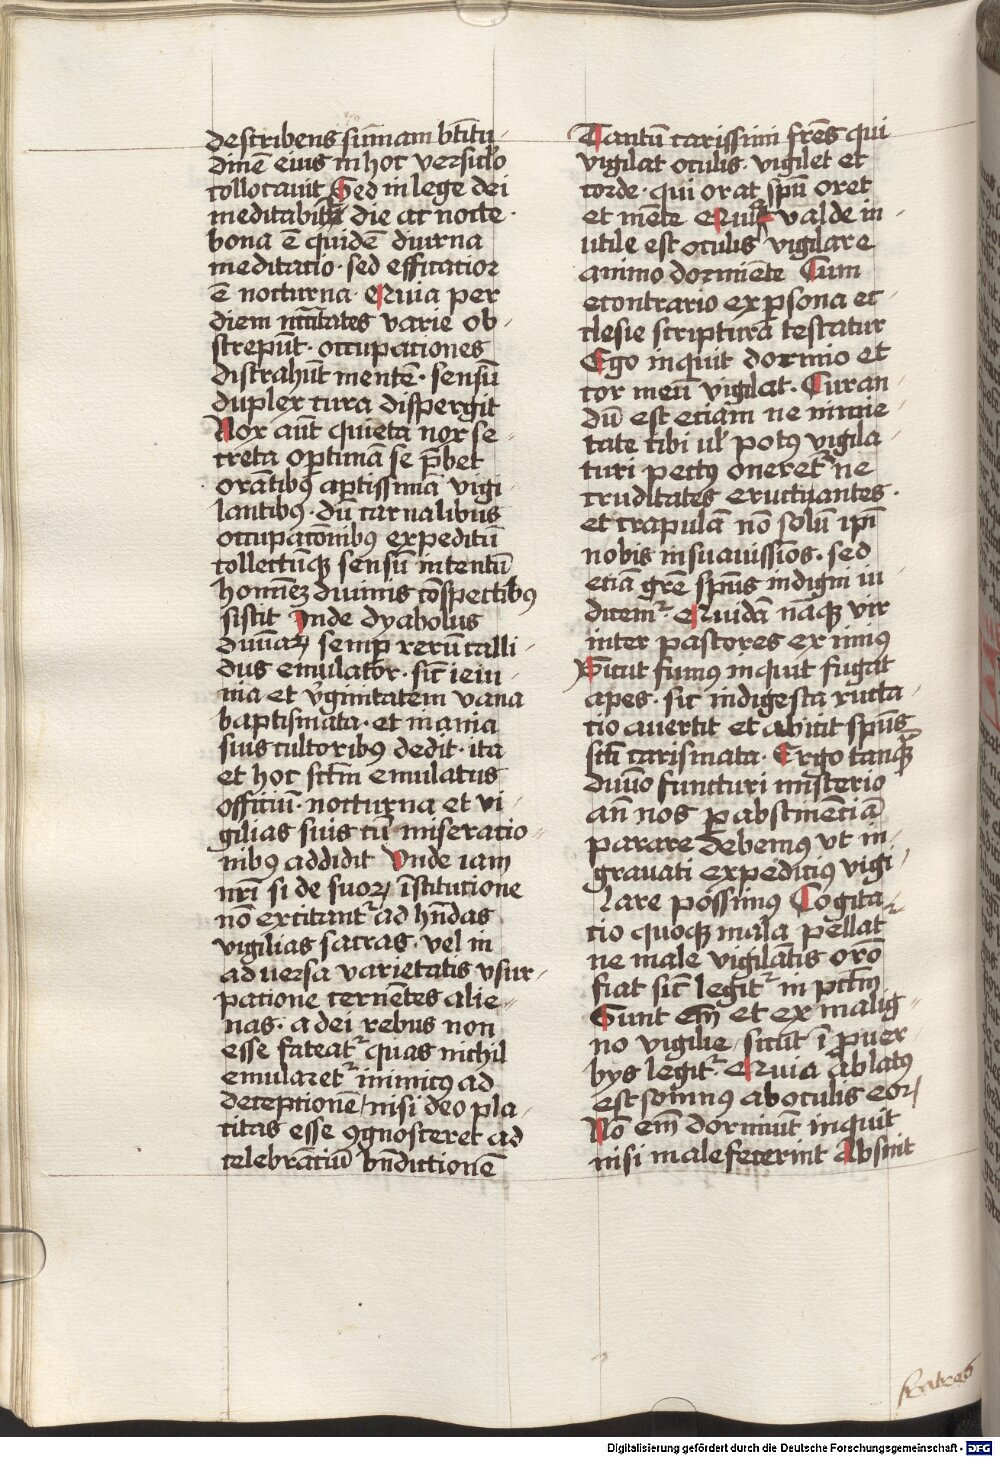 describens su̅mam bt̅itu-
dine̅ eius in hoc versic̅lo
collocauit Sed in lege dei
meditabit᷑ die ac nocte ·
bona e̅ quide̅ diurna
meditacio · sed efficacior
e̅ nocturna · Quia per
diem nc̅citates varie ob-
strepu̅t · occupaciones
distrahu̅t mente̅ · sensu̅
duplex cura dispergit
Nox au̅t quieta nox se-
creta optima̅ se p̅bet
ora̅tibꝰ aptissima̅ vigi
lantibꝰ · du̅ carnalibus
occupac̅onibꝰ expeditu̅
collectu̅qꝫ sensu̅ intentu̅
homine̅ꝫ diuinis co̅spectibꝰ
sistit Unde dyabolus
diuinaꝝ semp̲ reru̅ calli-
dus emulator · sic̅ ieiu-
nia et v̓ginitatem vana
baptismata · et inania
suis cultoribꝰ dedit · ita
et hoc sc̅tm emulatus
officiu̅ · nocturna et vi-
gilias suis cu̅ miseracio-
nibꝰ addidit Unde iam
nr̅i si de suoꝝ i̅stitucione
no̅ excitant᷑ ad hn̅das
vigilias sacras · vel in
aduersa varietatis vsur-
patione cerne̅tes alie-
nas · a dei rebus non
esse fateat᷑ quas nichil
emularet᷑ inimicꝰ ad
deceptione̅ / nisi deo pla-
citas esse ꝯgnosceret ad
celebra̅ciu̅ bn̅dictione̅
Tantu̅ carissimi fr̅es qui
vigilat oculis · vigilet et
corde · qui orat spu̅ oret
et me̅te Quia valde in-
utile est oculis vigilare
animo dormie̅te Cum
econtrario ex p̲sona ec-
clesie scriptura testatur
Ego inquit dormio et
cor meu̅ vigilat · Curan-
du̅ est eciam ne nimie-
tate cibi ul̓ potꝰ vigila-
turi pectꝰ oneret᷑ ne
cruditates eructuantes ·
et crapula̅ no̅ solu̅ ip̅i
nobis insuauissi̅os · sed
ecia̅ gr̅e spu̅s indigni iu-
dicem᷑ · Quida̅ na̅qꝫ vir
inter pastores eximiꝰ
Sicut fumꝰ inquit fugat
apes · sic indigesta ructa-
cio auertit et abicit spu̅s
sc̅ti carismata · Ergo tanqꝫ
diuino functuri misterio
an̅ nos p̲ abstine̅cia̅
parare debemꝰ vt in-
grauati expediciꝰ vigi-
lare possimꝰ Cogita-
cio quoqꝫ mala pellat᷑
ne male vigila̅tis or̅o
fiat sic̅ legit᷑ in pct̅m
Sunt em̅ et ex malig-
no vigilie / sicut i̅ p̲uer-
bys legit᷑ · Quia ablatꝰ
est somnꝰ ab oculis eoꝝ
No̅ em̅ dormiu̅t inquit
nisi malefecerint Absint
fratres
Digitalisierung gefördert durch die Deutsche Forschungsgemeinschaft - DFG